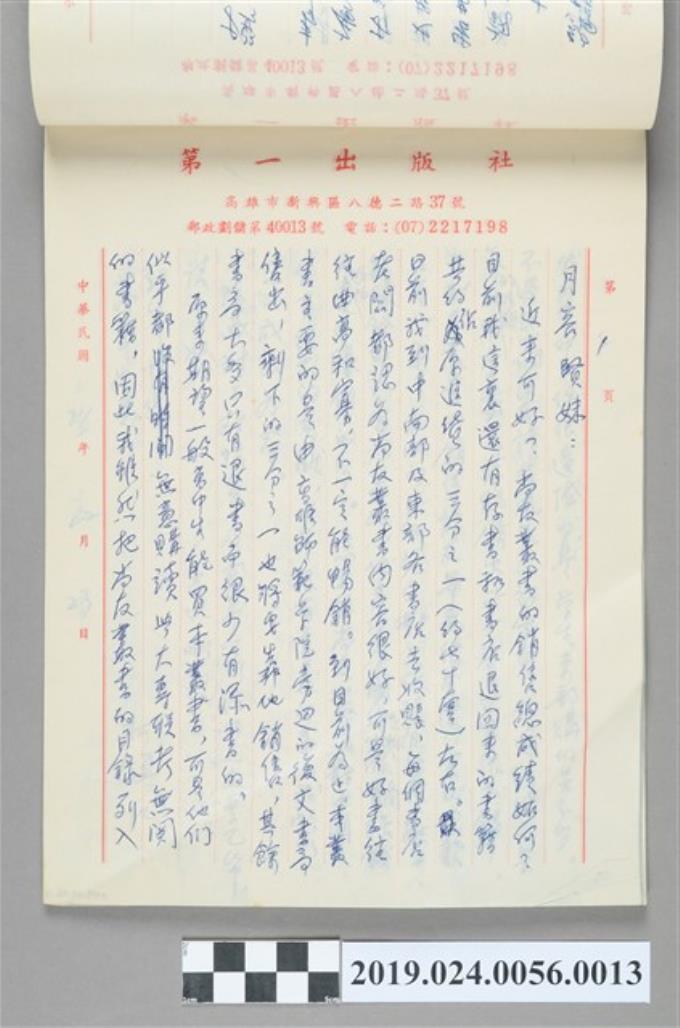 第一出版社
高雄市新興區八德二路37號
郵政劃儲第40013號 電話：(07)2217198
第 1 頁
月容賢妹：
近來可好？尚友叢書的銷售總成績如何？
目前我這裏還有存書和書店退回來的書籍
共約佔原進貨的三分之一（約七十套）左右。
日前我到中南部及東部各書店去收賬，每個書店
老闆都認為尚友叢書內容很好，可是好書往
往曲高和寡，不一定能暢銷。到目前為止本叢
書主要的是由高雄師範學院旁邊的復文書局
售出，剩下的三分之一也將要靠他銷售，其餘
書局大多只有退書而很少有添書的。
原來期望一般高中生能買本叢書，可是他們
似乎都無意購讀與大專聯考無關
的書籍，因此我雖然把尚友叢書的目錄列入
中華民國 年 月 23 日
2019.024.0056.0013